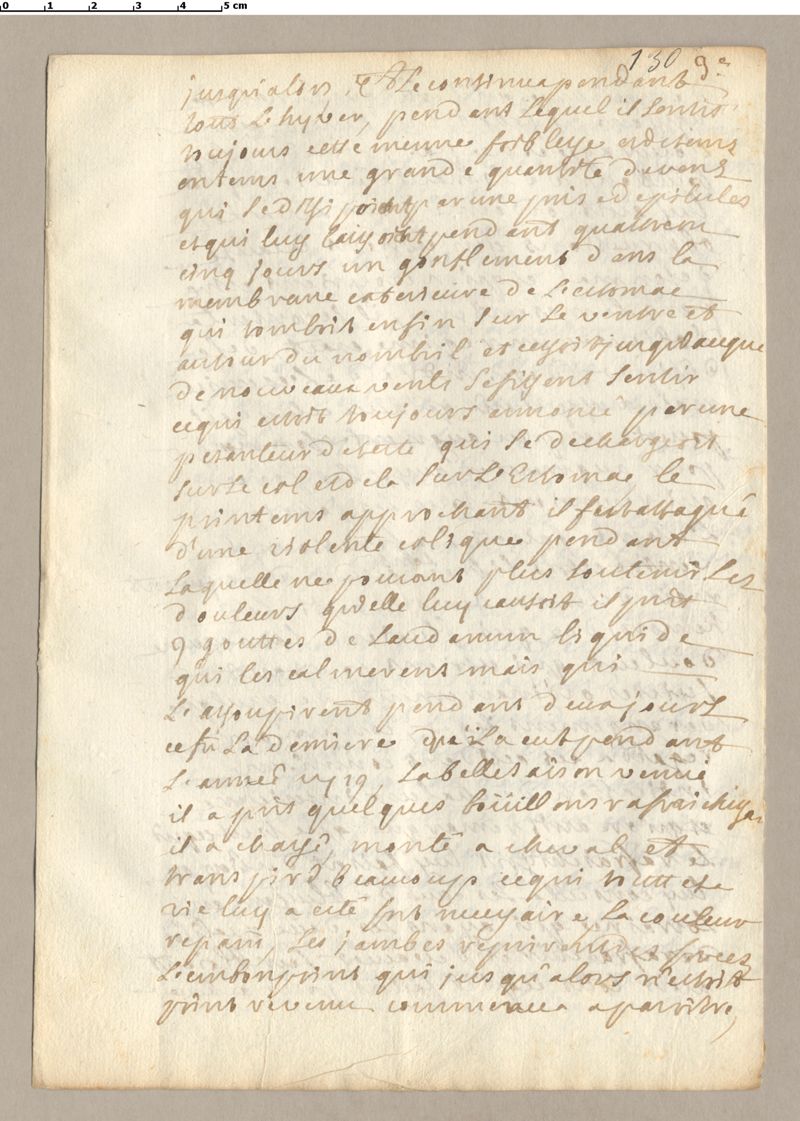 0 1 2 3 4 5 cm
130 9e
jusqu'alors, et le continua pendant
touts L'hyver, pendant Lequel il sentit
toujours cette meme foiblesse et de tems
en tems une grande quantité de vents
qui se dissipoint par une prise de pilules
et qui luy laissoint pendant quattre ou
cinq jours un gonflement dans la
membrane exterieure de L'estomac
qui tomboit enfin sur Le ventre et
autour du nombril et cessoit jusqu'a ceque
de nouveaux vents se fissent sentir
cequi estoit toujours annoncé par une
pesanteur de teste qui se dechargeoit
sur Le col et de la sur L'Estomac, le
printems approchant il fut attaqué
d'une violente colique pendant
Laquelle ne pouvant plus soutenir Les
douleurs qu'elle luy causoit il prit
9 gouttes de Laudanum liquide
qui les calmerent mais qui
L'assoupirent pendant deux jours
ce fu La derniere qu'il a eut pendant
L'année 1719, La belle saison venüe
il a prit quelques boüillons rafraichissa
il a chassé, monté a cheval et
transpiré beaucoup cequi toutte sa
vie luy a esté fort necessaire, La couleur
reparu, Les jambes reprirent des forces
L'embonpoint qui jusqu'alors n'estoit
point revenu commenca a paroitre,